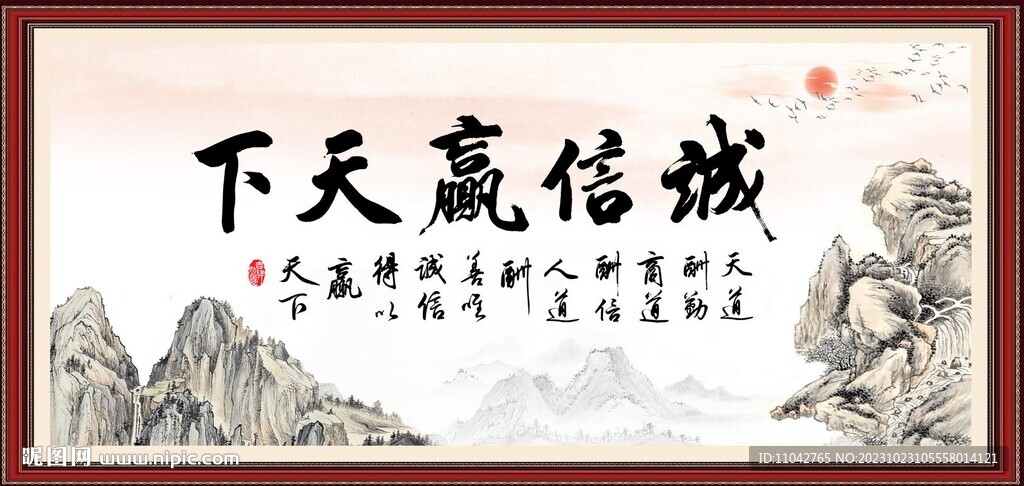 誠信贏天下
天道
酬勤
商道
酬信
人道
酬
善唯
誠信
得以
贏
天下
昵图网 www.nipic.com
ID:11042765 NO:20231023105558014121